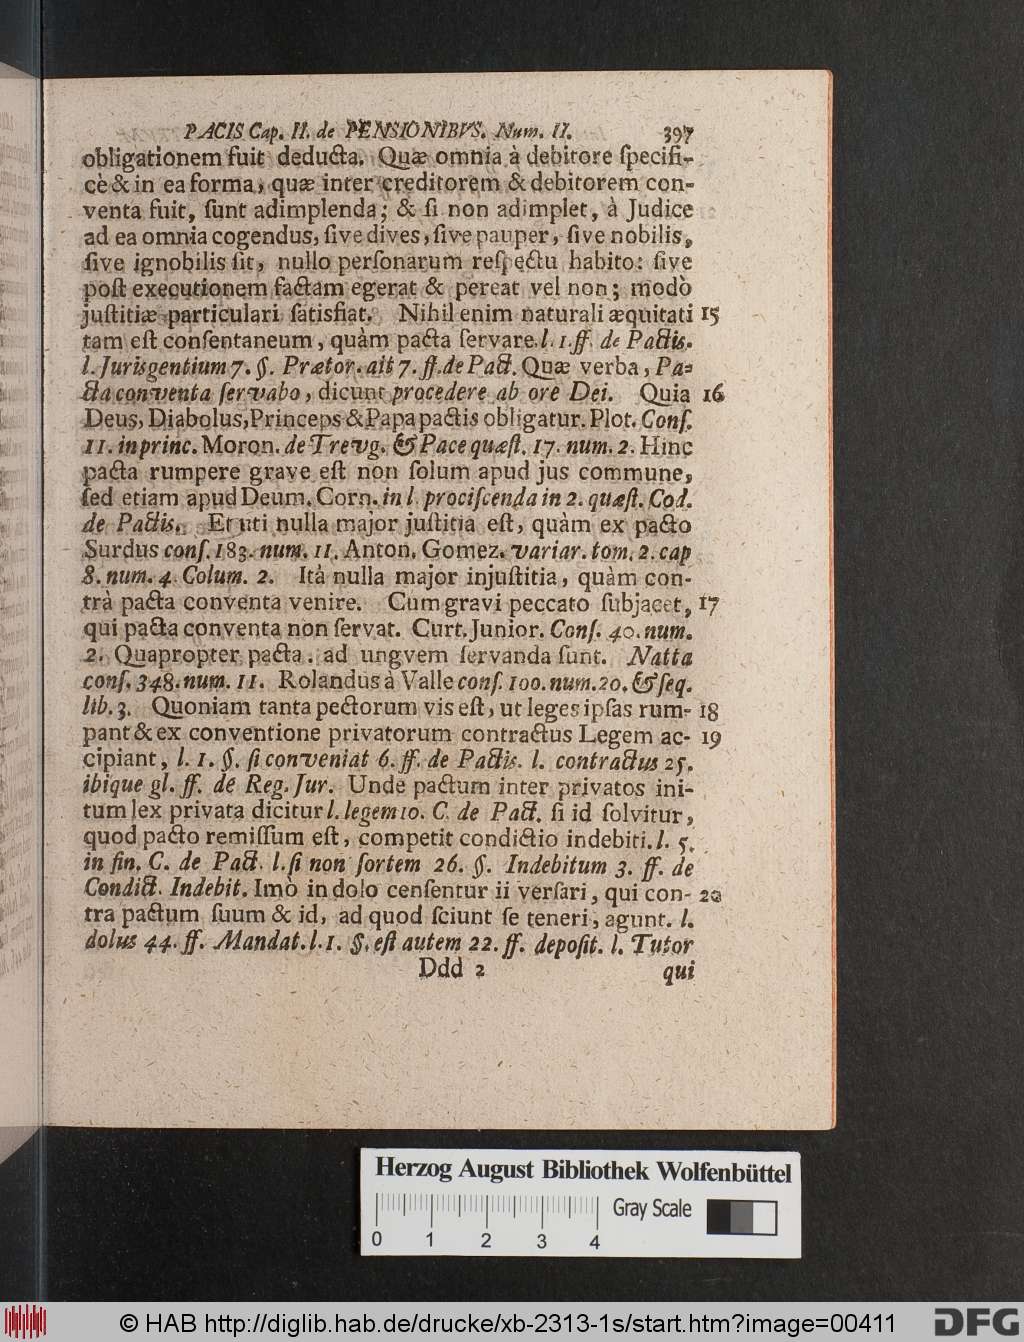 PACIS Cap. II. de PENSIONIBVS. Num. II. 397
obligationem fuit deducta. Quæ omnia à debitore ſpecifi-
cè & in ea forma, quæ inter creditorem & debitorem con-
venta fuit, ſunt adimplenda; & ſi non adimplet, à Judice
ad ea omnia cogendus, ſive dives, ſive pauper, ſive nobilis,
ſive ignobilis ſit, nullo perſonarum reſpectu habito: ſive
poſt executionem factam egerat & pereat vel non; modò
juſtitiæ particulari ſatisfiat. Nihil enim naturali æquitati 15
tam eſt conſentaneum, quàm pacta ſervare. l. 1. ff. de Pactis.
l. Jurisgentium 7. §. Prætor. ait 7. ff. de Pact. Quæ verba, Pa-
cta conventa ſervabo, dicunt procedere ab ore Dei. Quia 16
Deus, Diabolus, Princeps & Papa pactis obligatur. Plot. Conſ.
11. in princ. Moron. de Trevg. & Pace quæſt. 17. num. 2. Hinc
pacta rumpere grave eſt non ſolum apud jus commune,
ſed etiam apud Deum. Corn. in l. prociſcenda in 2. quæſt. Cod.
de Pactis. Et uti nulla major juſtitia eſt, quàm ex pacto
Surdus conſ. 183. num. 11. Anton. Gomez. variar. tom. 2. cap
8. num. 4. Colum. 2. Ità nulla major injuſtitia, quàm con-
trà pacta conventa venire. Cum gravi peccato ſubjacet, 17
qui pacta conventa non ſervat. Curt. Junior. Conſ. 40. num.
2. Quapropter pacta. ad ungvem ſervanda ſunt. Natta
conſ. 348. num. 11. Rolandus à Valle conſ. 100. num. 20. & ſeq.
lib. 3. Quoniam tanta pectorum vis eſt, ut leges ipſas rum- 18
pant & ex conventione privatorum contractus Legem ac- 19
cipiant, l. 1. §. ſi conveniat 6. ff. de Pactis. l. contractus 25.
ibique gl. ff. de Reg. Jur. Unde pactum inter privatos ini-
tum lex privata dicitur l. legem 10. C. de Pact. ſi id ſolvitur,
quod pacto remiſſum eſt, competit condictio indebiti. l. 5.
in fin. C. de Pact. l. ſi non ſortem 26. §. Indebitum 3. ff. de
Condict. Indebit. Imò in dolo cenſentur ii verſari, qui con- 20
tra pactum ſuum & id, ad quod ſciunt ſe teneri, agunt. l.
dolus 44. ff. Mandat. l. 1. §. eſt autem 22. ff. depoſit. l. Tutor
Ddd 2 qui
Herzog August Bibliothek Wolfenbüttel
Gray Scale
0 1 2 3 4
© HAB http://diglib.hab.de/drucke/xb-2313-1s/start.htm?image=00411
DFG